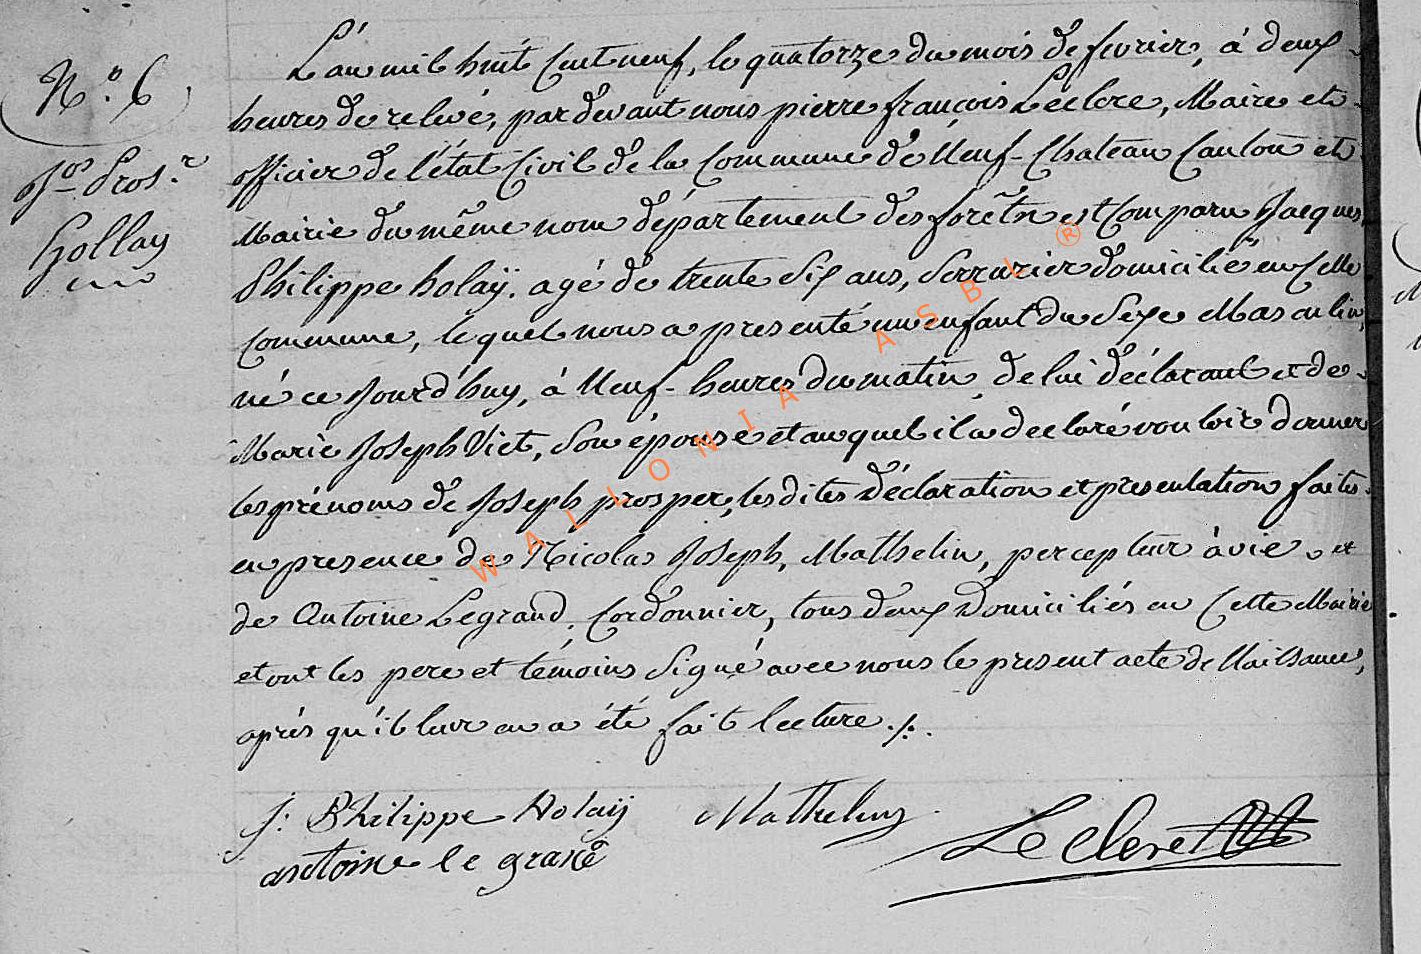 N.º 6
J.ºs Pros.r
Hollay
L'an mil huit cent neuf, le quatorze du mois de fevrier, à deux
heures de relevé, pardevant nous pierre françois Leclere, Maire et
officier de l'état Civil de la Commune de Neuf-Chateau Canton et
Mairie du même nom département des forêts est Comparu Jacques
Philippe holaÿ. agé de trente Six ans, Serrurier domicilié en Cette
Commune, lequel nous a presenté un enfant du Sexe Masculin,
né ce Jourd'huy, à Neuf-heures du matin de lui déclarant et de
Marie Joseph Viet, Son épouse et auquel il a declaré vouloir donner
les prénoms de Joseph prosper, les dites Déclaration et presentation faites
en presence de Nicolas Joseph, Mathelin, percepteur à vie et
de Antoine Legrand, Cordonnier, tous deux Domiciliés en Cette Mairie
et ont les pere et témoins Signé avec nous le present acte de Naissance,
après qu'il leur en a été fait lecture ./.
J: Philippe Holaÿ Mathelin
antoine le grand
Leclere
WALLONIA ASBL ®